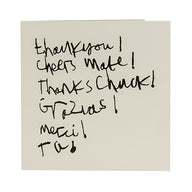 thankyou!
cheers mate!
Thanks Chuck!
Grazias!
merci!
Ta!